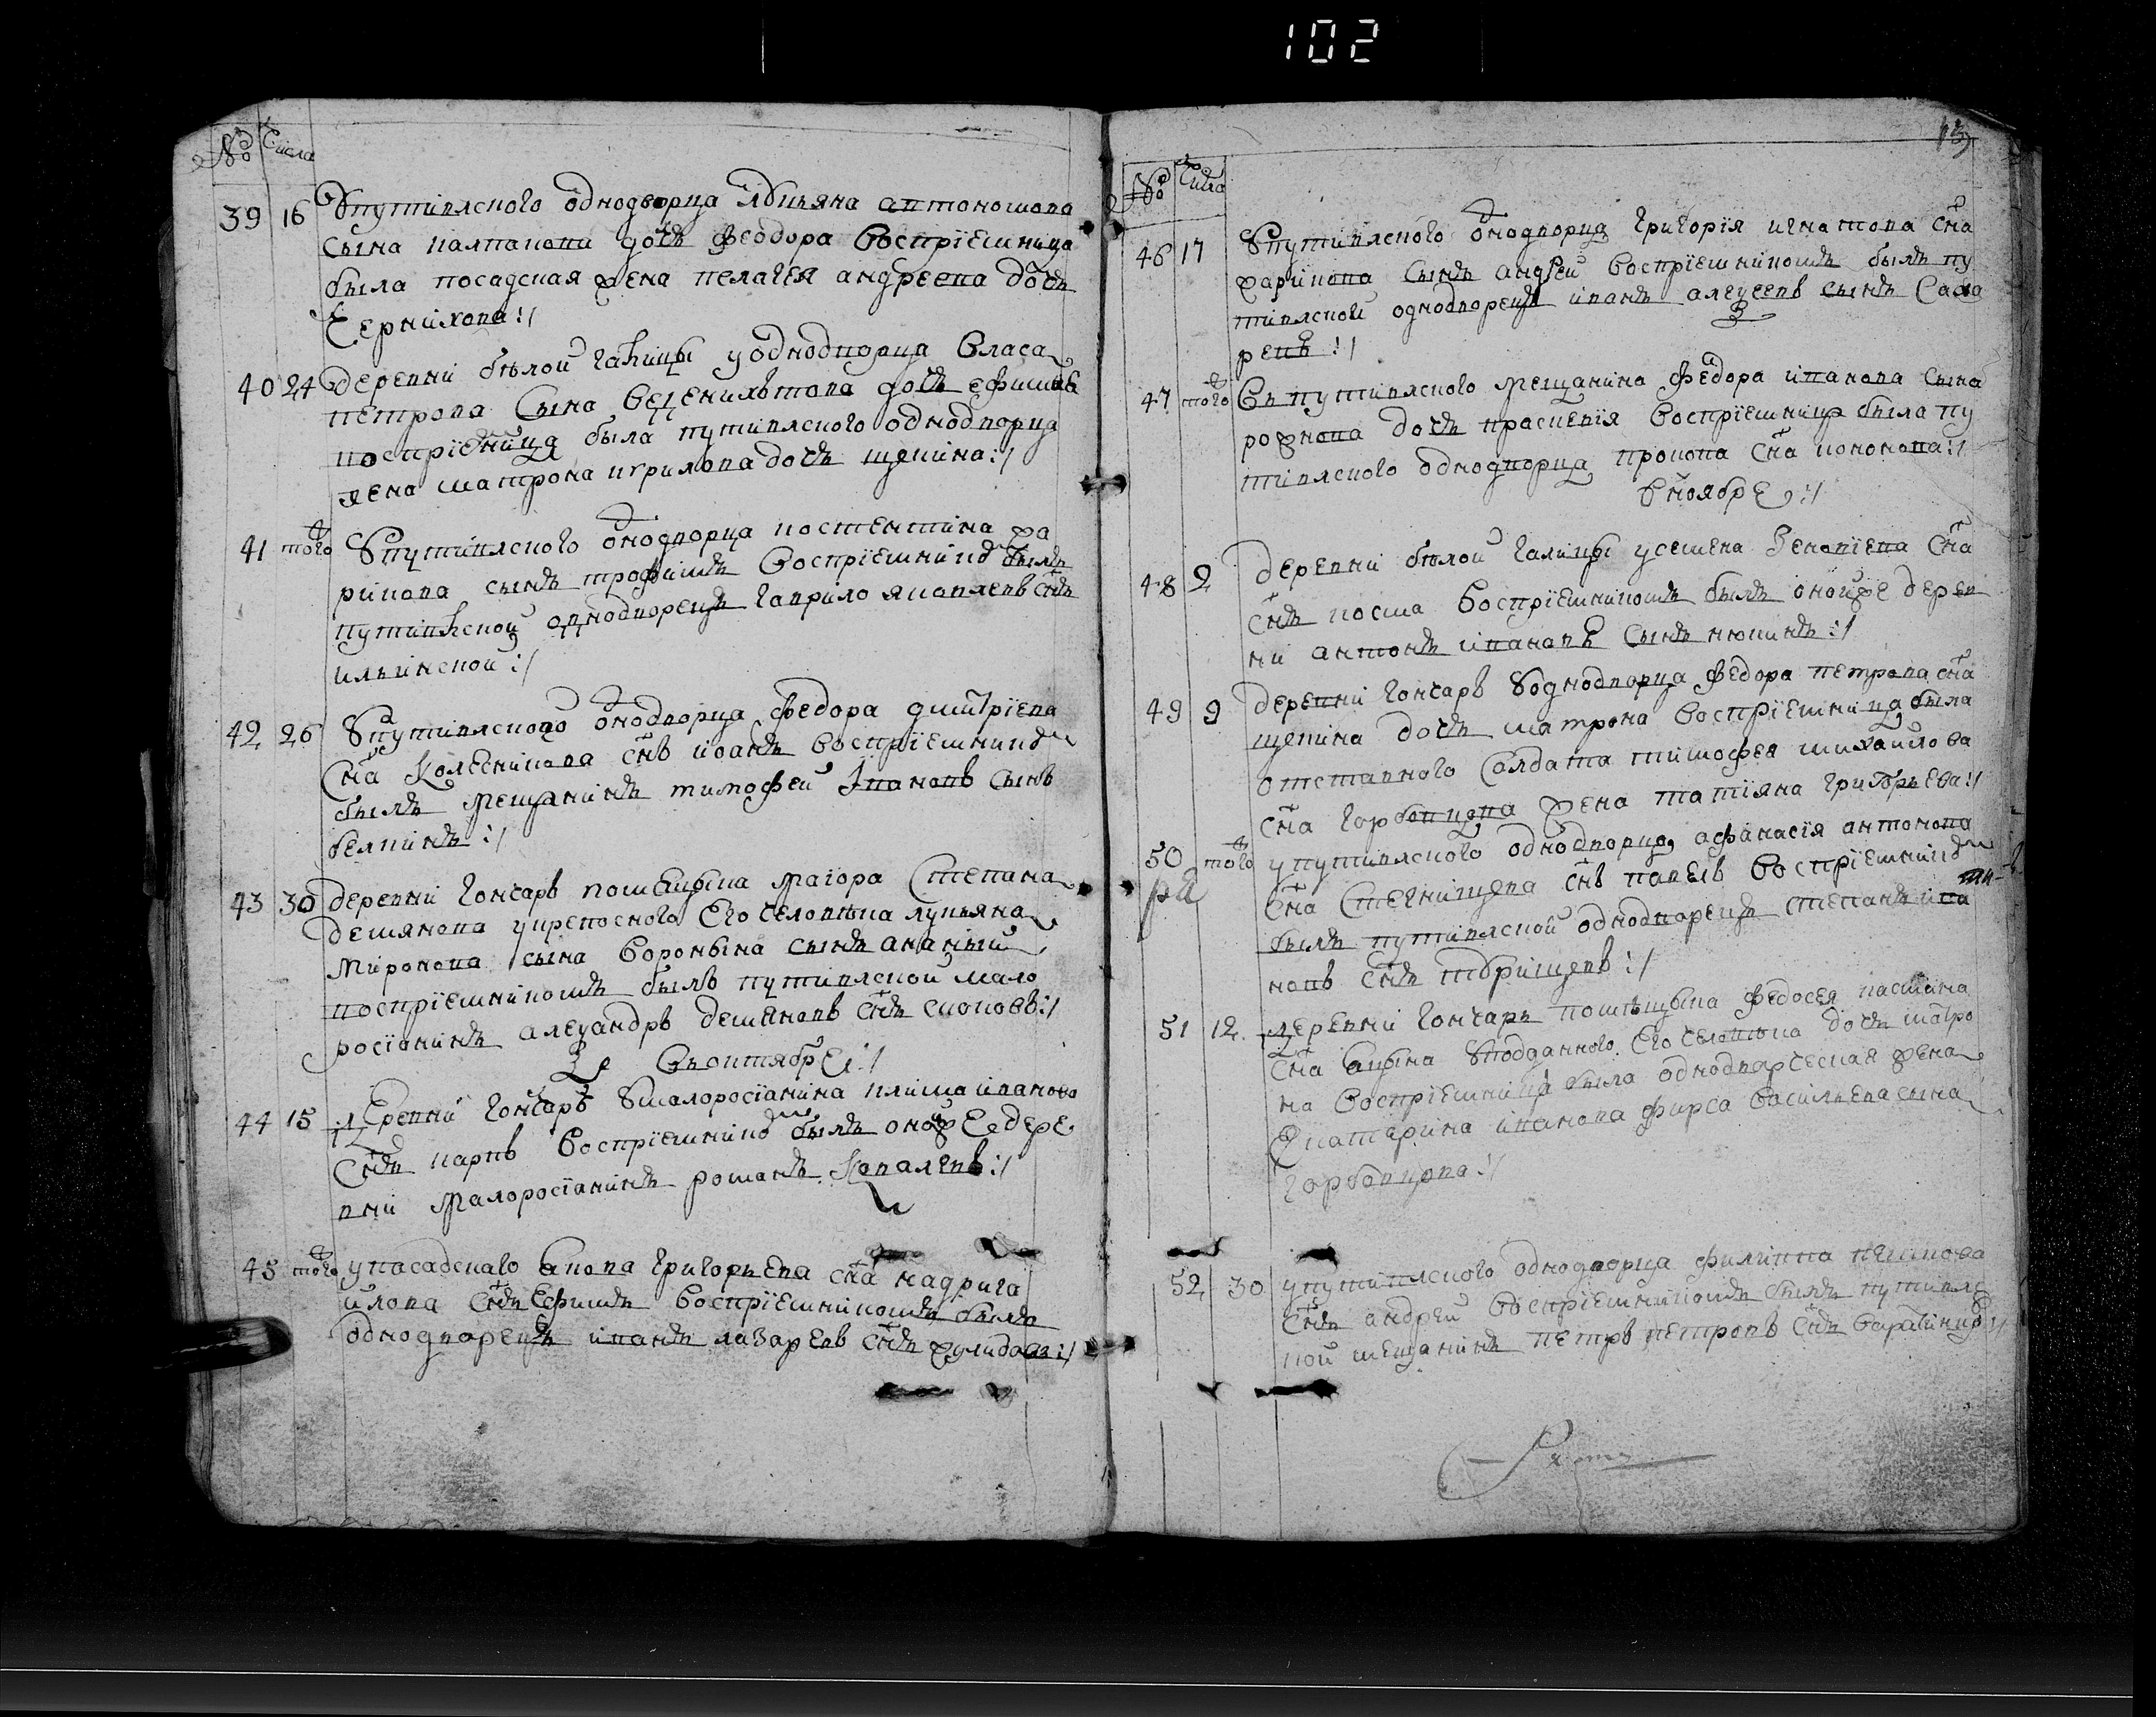 102
№ Числа
39 16 Упутивлского однодворца Улияна антономова
сына калпакова дочь феодора Воспріемница
была посадская жена пелагея андреева дочь
Чернихова:/
40 24 деревни белой галицы у однодворца Власа
петрова Сына дочь ефимия
воспріемница была путивлского однодворца
жена матрона кирилова дочь щекина:/
41 того Упутивлского однодворца костентина жа
рикова сынъ трофимъ Воспріемником былъ
путивлской однодворецъ гаврило яковлевъ снъ
ильинской:/
42 26 Упутивлского однодворца федора дмитріева
Сна Колесникова снъ иоанъ Воспріемником
былъ мещанинъ тимофей Ивановъ сынъ
белкинъ:/
43 30 деревни гончаръ помещика маіора Степана
демянова укрепосного Его человека лукьяна
миронова сына Воронына сынъ ананій
воспріемникомъ былъ путивлской мало
росіанинъ алеѯандръ демяновъ снъ :/
Въ октябрѣ:/
44 15 деревни гончаръ Умалоросіанина клима иванова
Снъ карпъ Воспріемником былъ оной же дере
вни малоросіанинъ романъ Ковалевъ:/
45 того упасадскаго григорьева сна
Снъ Ефимъ Воспріемникомъ былъ
однодворецъ иванъ лазаревъ снъ :/
13
№ Числа
46 17 Упутивлского однодворца григорія игнатова сна
жарикова сынъ андрей Воспріемникомъ былъ пу
тивлской однодворецъ иванъ алеѯеевъ сынъ
:/
47 того Въ путивлского мещанина федора иванова сына
рожнова дочь праскевія Воспріемница была пу
тивлского однодворца прокопа сна кононова:/
Въ ноябрѣ:/
48 2 деревни белой галицы усемена сна
снъ косма Воспріемникомъ былъ оной же дерев
ни антонъ ивановъ сынъ никинъ:/
49 9 деревни гончаръ Уоднодворца федора петрова сна
щекина дочь матрона Воспріемница была
отставного Салдата тимофея михайлова
сна горбовцова жена татіяна григорьева:/
50 того упутивлского однодворца афанасія антонова
Сна снъ павелъ Воспріемником
былъ путивлской однодворецъ степанъ ива
новъ снъ :/
51 12 деревни гончаръ помещика федосея
Сна Уподданного Его человека дочь матро
на Воспріемница была однодворческая жена
Екатерина иванова фирса Васильева сына
горбовцова:/
52 30 упутивлского однодворца филиппа
снъ андрей Воспріемникомъ былъ путивлс
кой мещанинъ петръ петровъ снъ :/